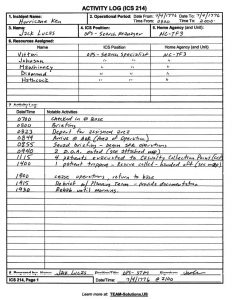 ACTIVITY LOG (ICS 214)
1. Incident Name: Hurricane Ken
2. Operational Period: Date From: 7/4/1776 Date To: 7/4/1776
Time From: 0800 Time To: 2000
3. Name: Jack Lucas
4. ICS Position: OPS - Search Manager
5. Home Agency (and Unit): NC-TF3
6. Resources Assigned:
Name ICS Position Home Agency (and Unit)
Vittori OPS - Search Specialist NC-TF3
Johnson " "
Mawhinney " "
Diamond " "
Hathcock " "
7. Activity Log:
Date/Time Notable Activities
0700 Checked in @ Base
0800 Briefing
0823 Depart for assignment area
0849 Arrive @ AOR (Area of Operation)
0855 Squad briefing - begin SAR operations
0940 2 D.O.A. noted (see attached map)
1115 4 patients evacuated to Casualty Collection Point
1400 1 patient trapping - Rescue called - handed off
1900 Cease operations, return to base
1915 Debrief w/ Planning Team - provide documentation
1930 Rehab until morning
8. Prepared by: Name: Jack Lucas Position/Title: OPS-STM Signature:
ICS 214, Page 1 Date/Time: 7/4/1776 @ 2100
Learn more at: TEAM-Solutions.US